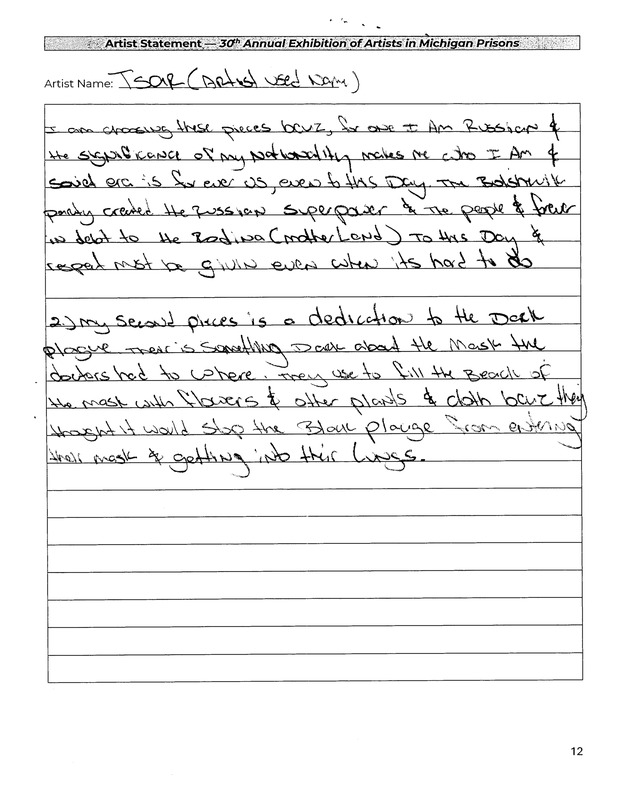 Artist Statement — 30th Annual Exhibition of Artists in Michigan Prisons
Artist Name: TSAR (Artist used Name)
I am choosing these pieces bcuz, for one I Am Russian &
the significance of my Nationality makes me who I Am &
soviet era is for ever us, even to this Day. The Bolshevik
party created the Russian Superpower & the people & forever
in debt to the Rodina (motherLand) To this Day &
respect must be givin even when its hard to do
2.) my second pieces is a dedication to the Dark
plague Their is something Dark about the Mask the
doctors had to where. They use to fill the Beack of
the mask with flowers & other plants & cloth bcuz they
thought it would stop the Black plauge from entering
their mask & getting into their Lungs.
12